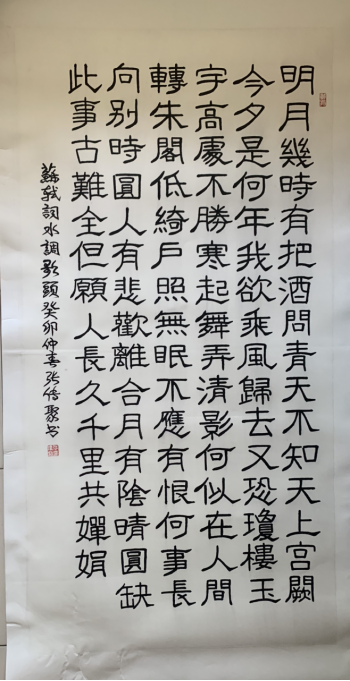 明月幾時有把酒問青天不知天上宮闕
今夕是何年我欲乘風歸去又恐瓊樓玉
宇高處不勝寒起舞弄清影何似在人間
轉朱閣低綺戶照無眠不應有恨何事長
向別時圓人有悲歡離合月有陰晴圓缺
此事古難全但願人長久千里共嬋娟
蘇軾詞水調歌頭癸卯仲春张书